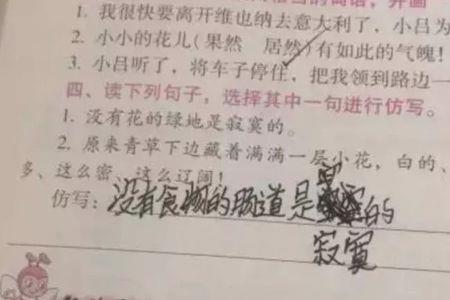 1. 我很快要离开维也纳去意大利了，小吕为
2. 小小的花儿(果然 居然)有如此的气魄！
3. 小吕听了，将车子停住，把我领到路边一
四、读下列句子，选择其中一句进行仿写。
1. 没有花的绿地是寂寞的。
2. 原来青草下边藏着满满一层小花，白的、
多、这么密、这么辽阔！
仿写：没有食物的肠道是的
寂寞